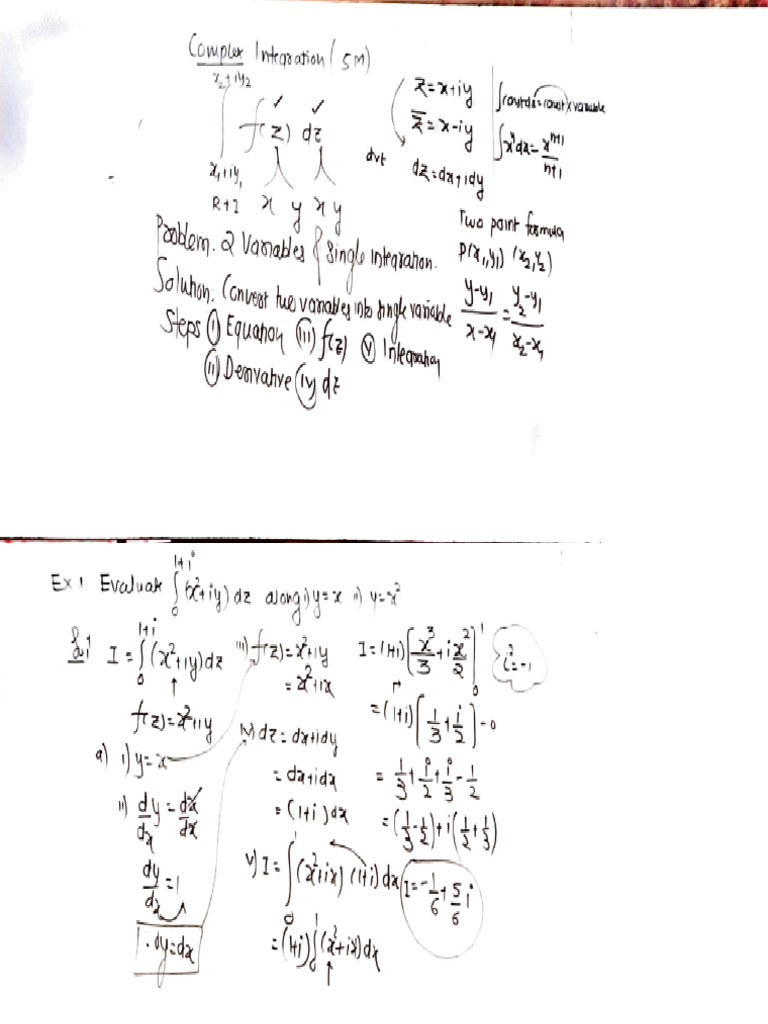 Complex Integration (5M)
x₂+iy₂
∫ f(z) dz
x₁+iy₁
R+I x y x y
z=x+iy
z̄=x-iy
dz=dx+idy
∫const dx=const×variable
∫xⁿdx=xⁿ⁺¹/n+1
Two point formula
P(x₁,y₁) (x₂,y₂)
y-y₁/x-x₁=y₂-y₁/x₂-x₁
Problem. 2 Variables & Single Integration.
Solution. Convert two variables into single variable
Steps (i) Equation (iii) f(z) (v) Integration
(ii) Derivative (iv) dz
Ex 1 Evaluate ∫₀¹⁺ⁱ (x²+iy) dz along i) y=x ii) y=x²
I=∫₀¹⁺ⁱ (x²+iy)dz
f(z)=x²+iy
a) i) y=x
ii) d/dx y=dx/dx
dy/dx=1
dy=dx
iii) f(z)=x²+iy
=x²+ix
iv) dz=dx+idy
=dx+idx
=(1+i)dx
v) I=∫₀¹ (x²+ix) (1+i)dx
=(1+i)∫₀¹(x²+ix)dx
I=(1+i)[x³/3+i x²/2]₀¹
i²=-1
=(1+i)[1/3+i/2]-0
=1/3+i/2+i/3-1/2
=(1/3-1/2)+i(1/2+1/3)
I=-1/6+5/6 i